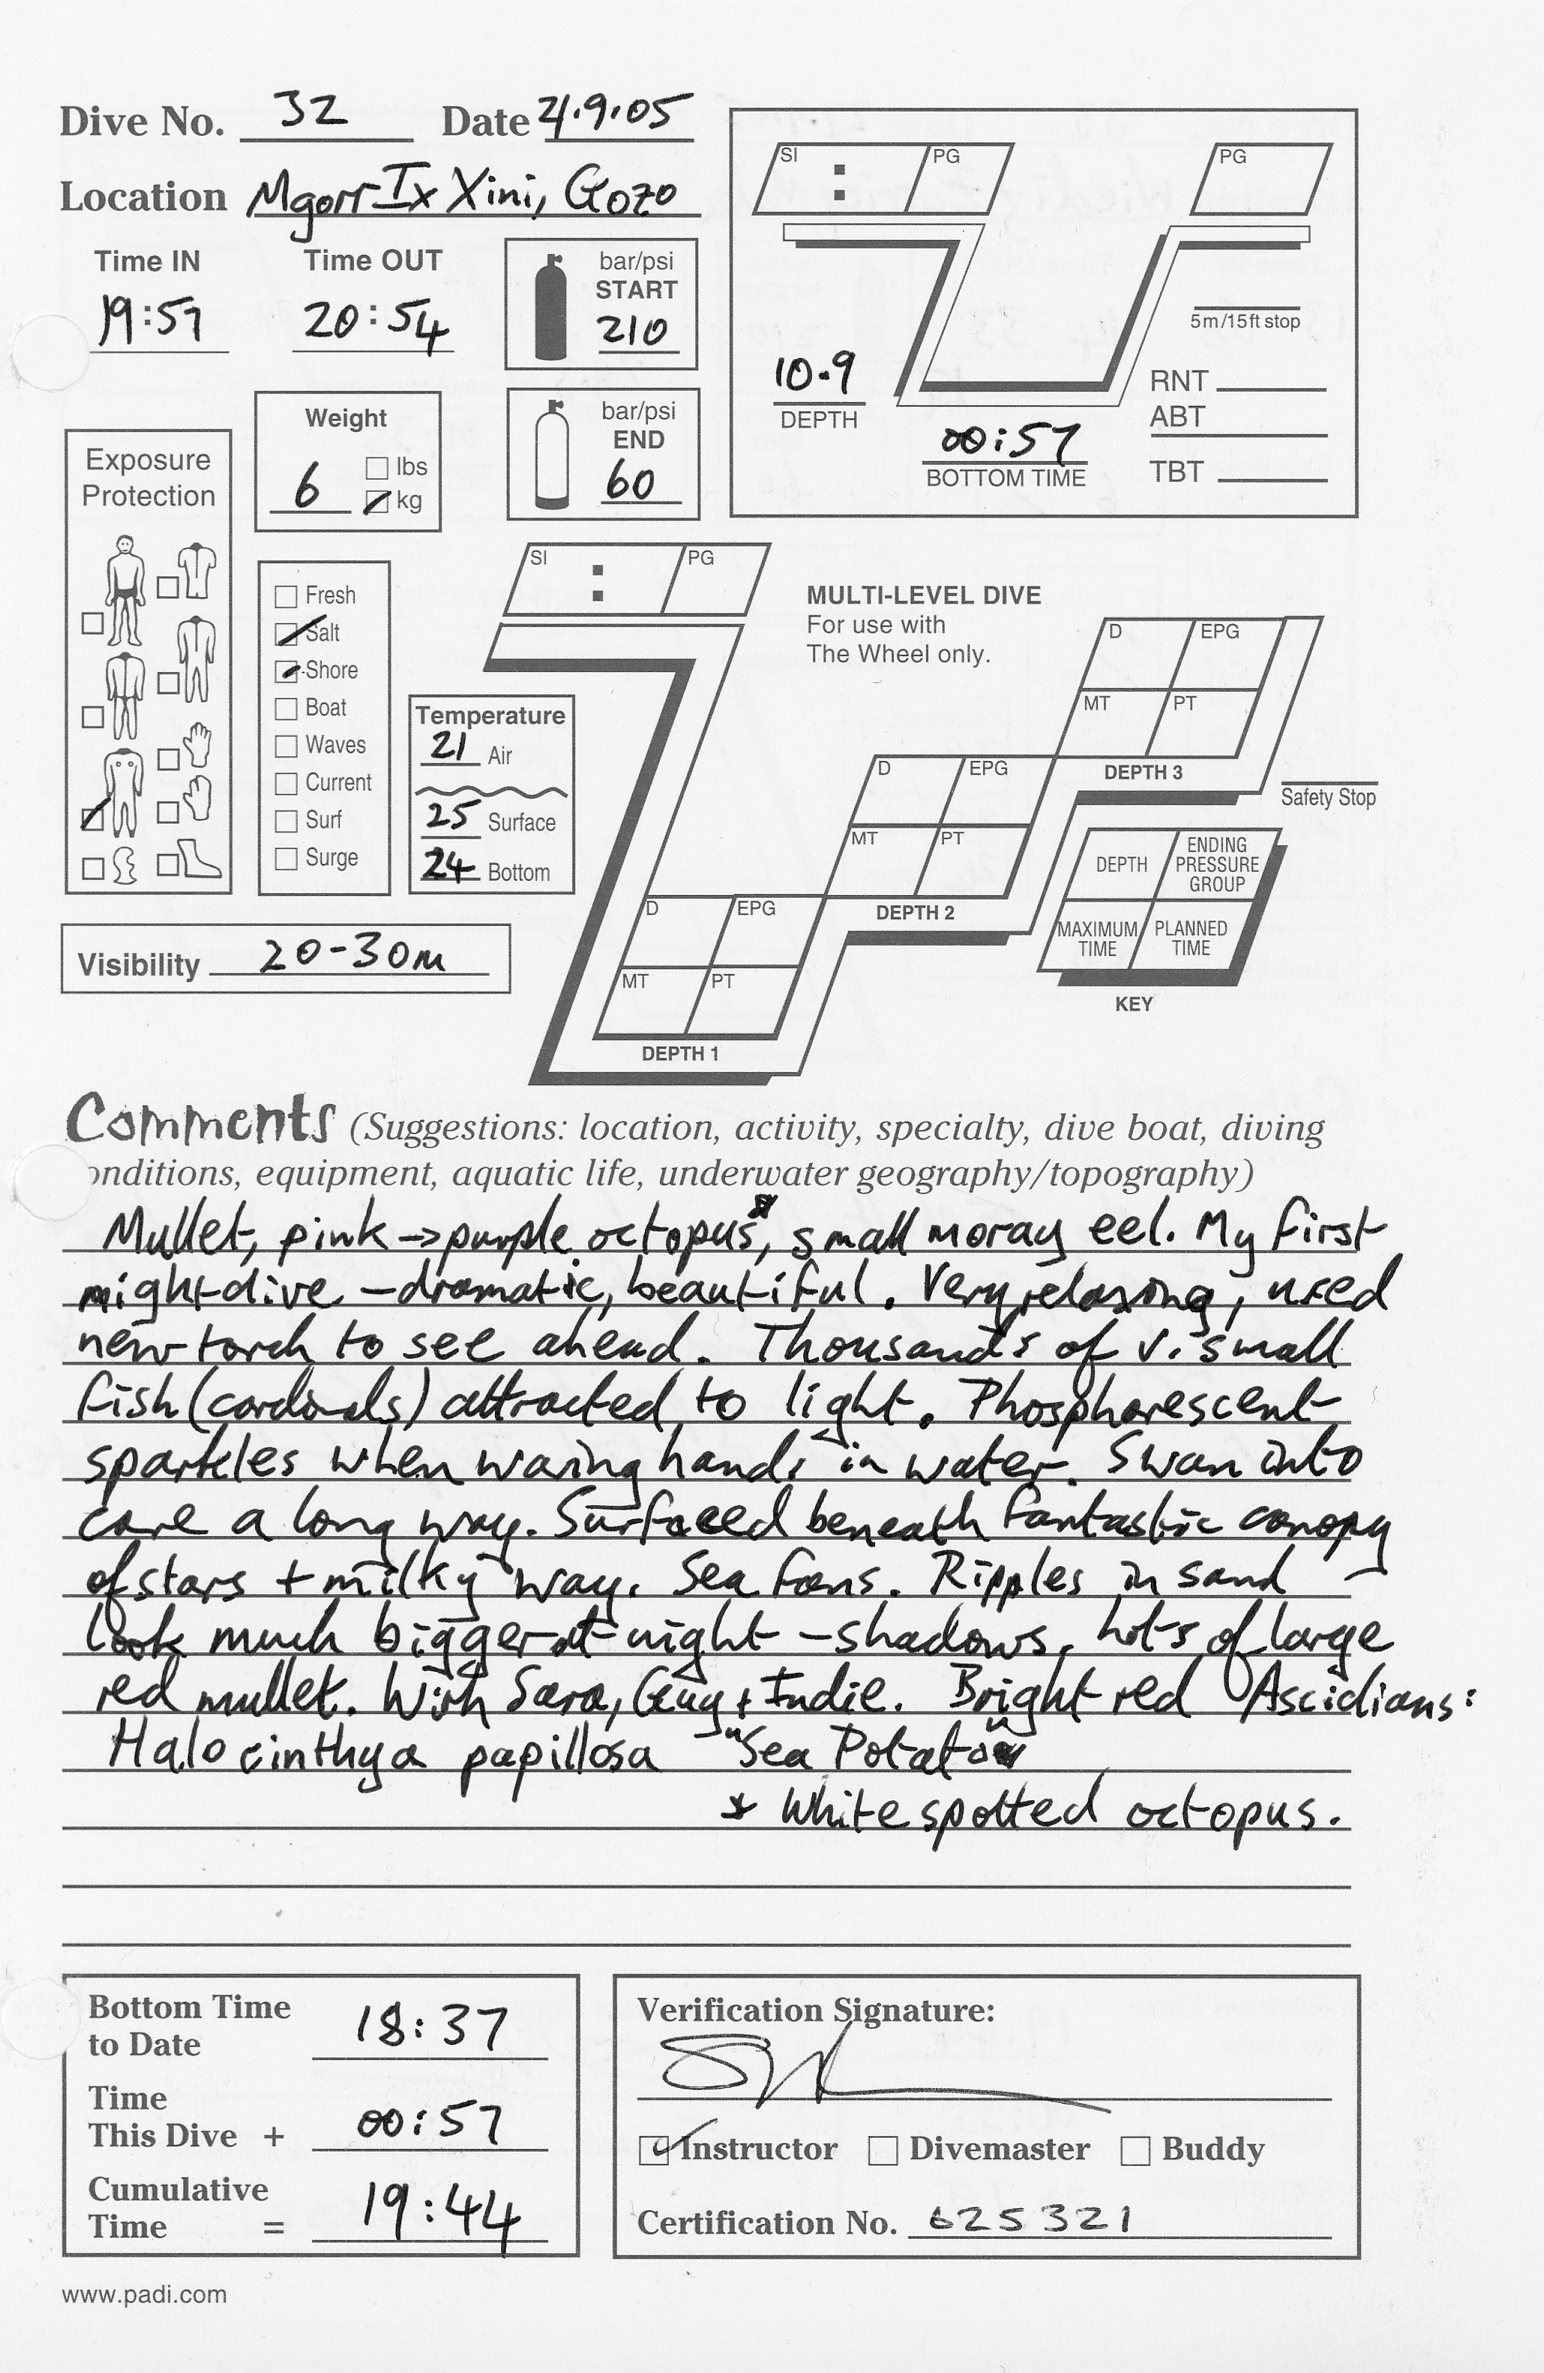 Dive No. 32 Date 21.9.05
Location Mgorr Ix Xini, Gozo
Time IN Time OUT
19:57 20:54
bar/psi
START
210
bar/psi
END
60
Weight
6 lbs
kg
Exposure
Protection
Fresh
Salt
Shore
Boat
Waves
Current
Surf
Surge
Temperature
21 Air
25 Surface
24 Bottom
Visibility 20-30m
SI : PG PG
5m/15ft stop
10.9
DEPTH
00:57
BOTTOM TIME
RNT
ABT
TBT
SI : PG
MULTI-LEVEL DIVE
For use with
The Wheel only.
D EPG
MT PT
DEPTH 3
D EPG
MT PT
DEPTH 2
D EPG
MT PT
DEPTH 1
Safety Stop
DEPTH ENDING PRESSURE GROUP
MAXIMUM TIME PLANNED TIME
KEY
Comments (Suggestions: location, activity, specialty, dive boat, diving
onditions, equipment, aquatic life, underwater geography/topography)
Mullet, pink → purple octopus*, small moray eel. My first
night dive – dramatic, beautiful. Very relaxing, used
new torch to see ahead. Thousands of v. small
fish (cardinals) attracted to light. Phosphorescent
sparkles when waving hands in water. Swam into
cave a long way. Surfaced beneath fantastic canopy
of stars + milky way. Sea fans. Ripples in sand
look much bigger at night – shadows. Lots of large
red mullet. With Sara, Guy + Indie. Bright red Ascidians:
Halocinthya papillosa "Sea Potato"
* White spotted octopus.
Bottom Time
to Date 18:37
Time
This Dive + 00:57
Cumulative
Time = 19:44
Verification Signature:
Instructor Divemaster Buddy
Certification No. 625321
www.padi.com